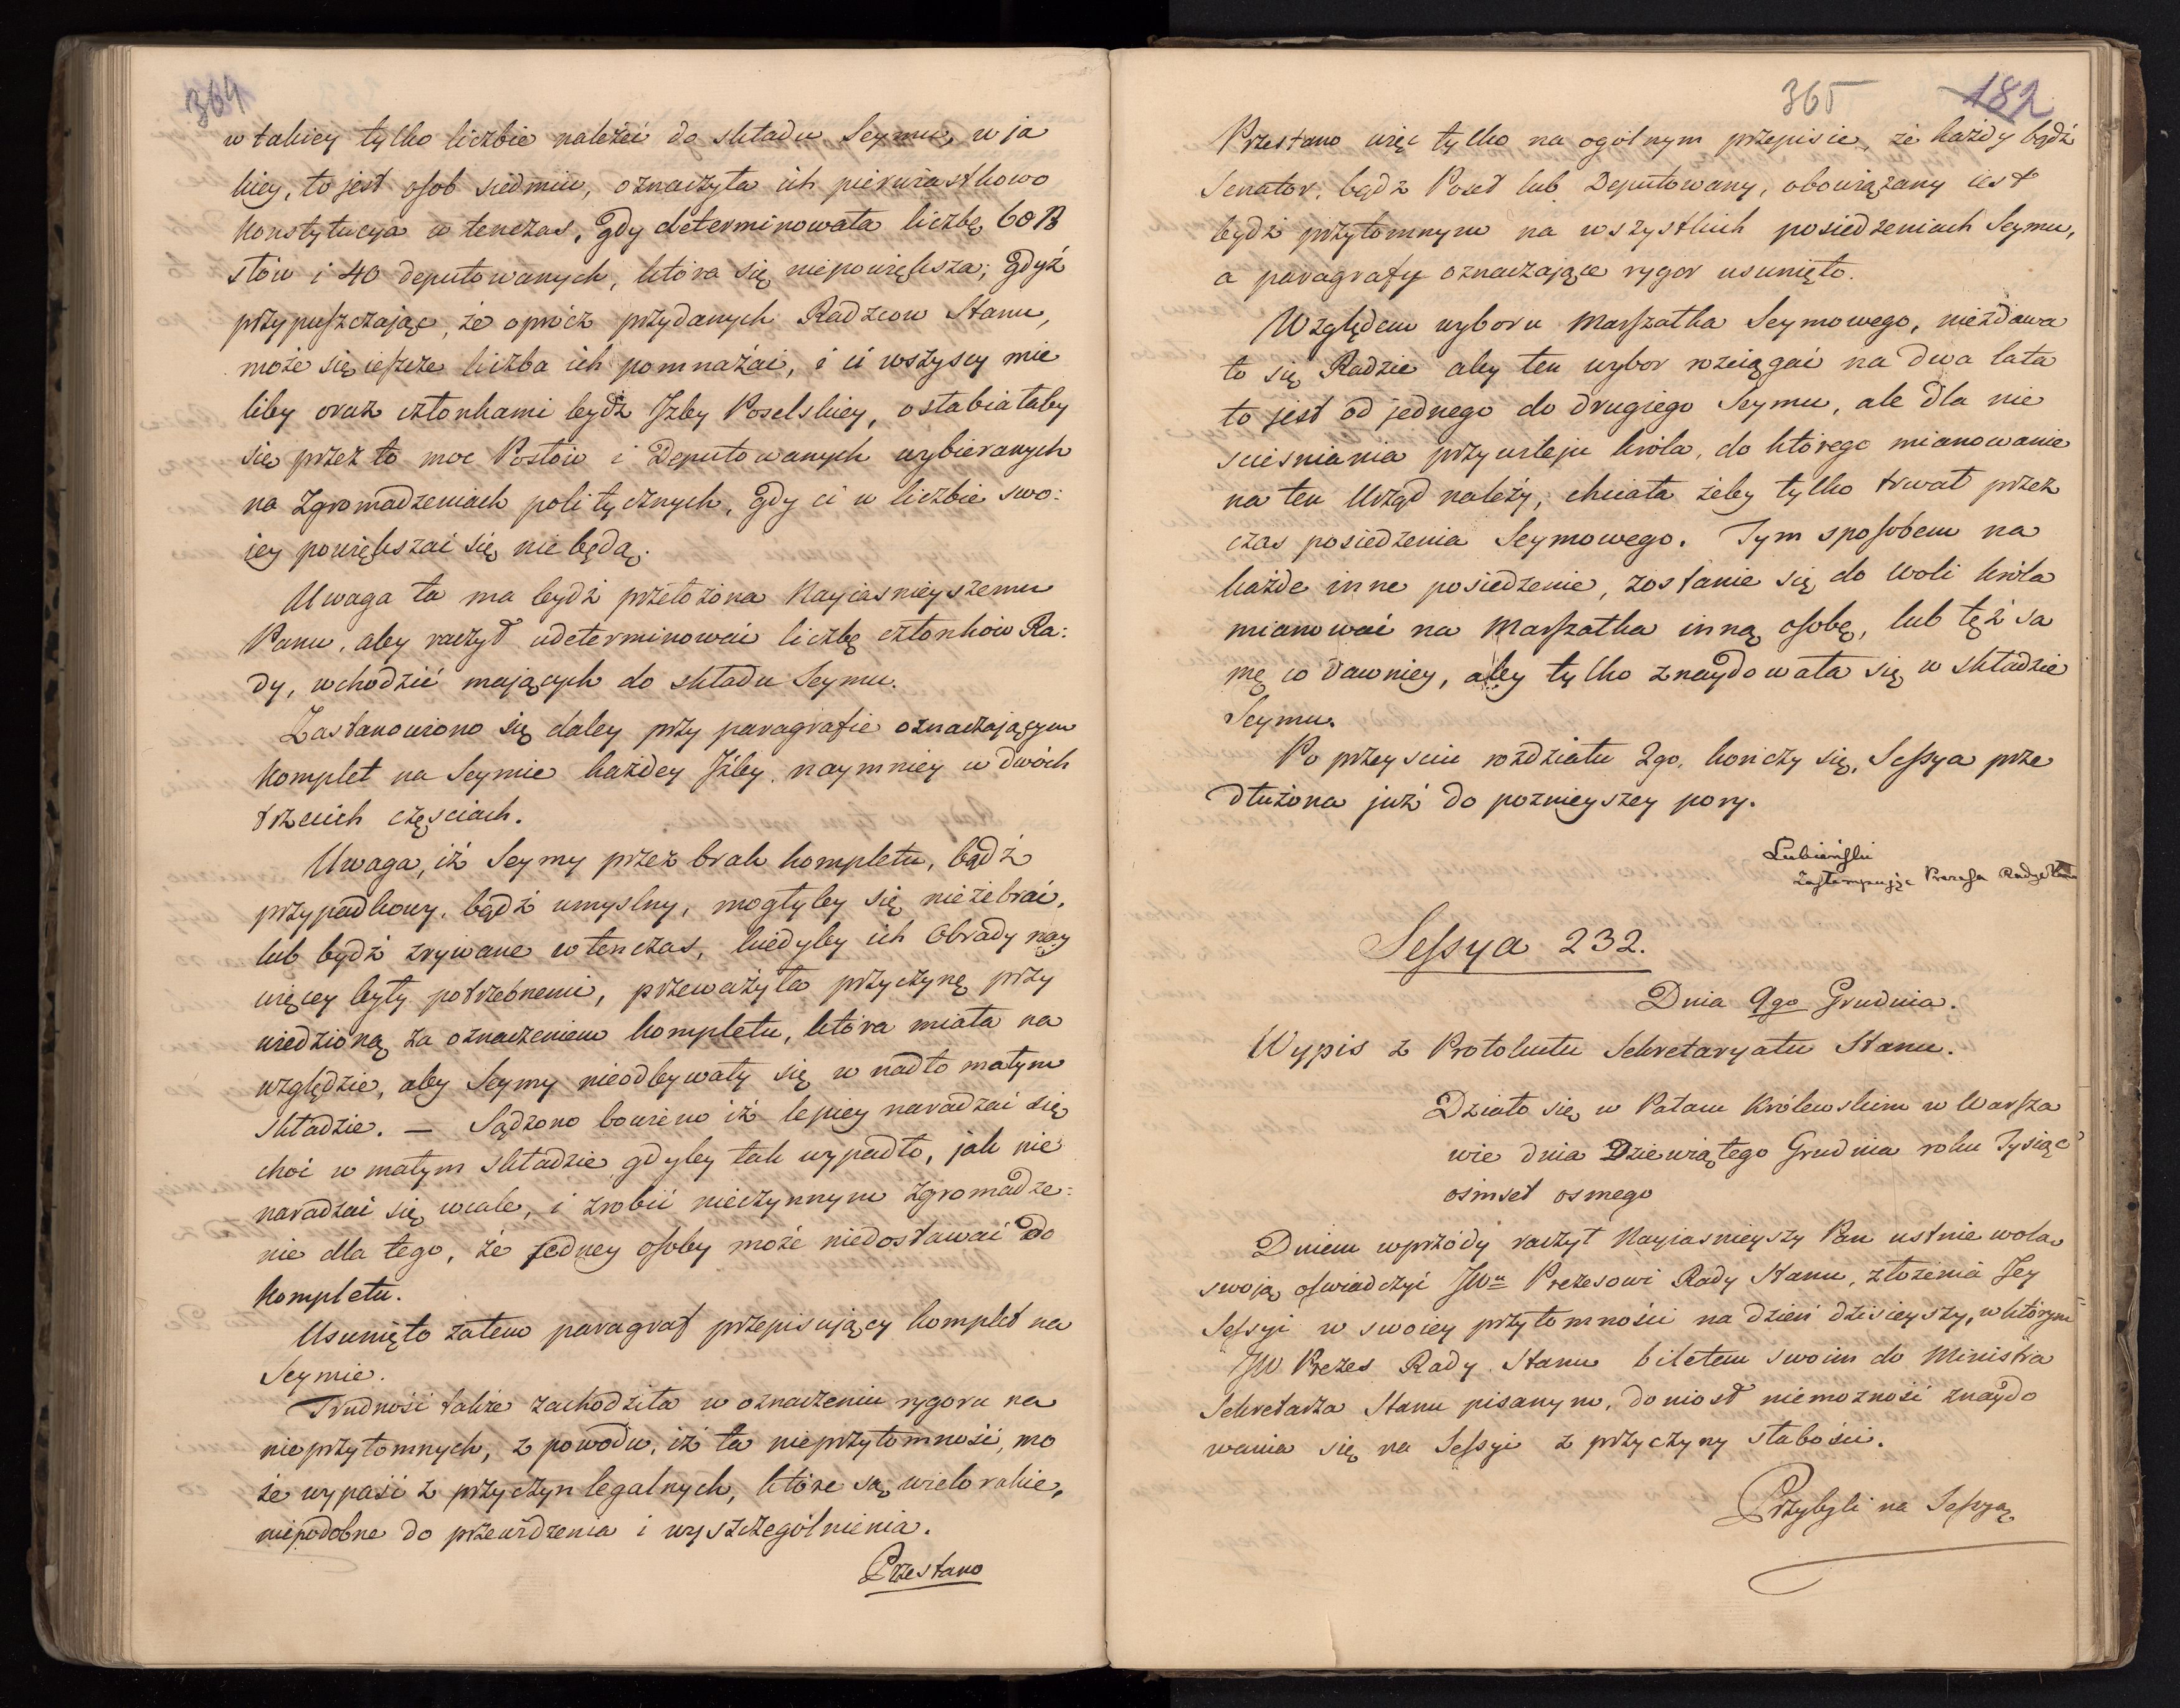 364
w takiey tylko liczbie należéć do składu Seymu, w ja
kiey, to jest osob siedmiu, oznaczyła ich pierwiastkowo
Konstytucya w tenczas, gdy determinowała liczbę 60 P
słów i 40 deputowanych, która się niepowiększa; gdyż
przypuszczając, że oprócz przydanych Radzcow Stanu,
może się ieszcze liczba ich pomnażać, i ci wszyscy mie
liby oraz członkami bydź Jzby Poselskiey, osłabiałaby
się przez to moc Posłów i Deputowanych wybieranych
na Zgromadzeniach politycznych, gdy ci w liczbie swo:
iey powiększać się nie będą.
Uwaga ta ma bydź przełożona Nayiasnieyszemu
Panu, aby raczył udeterminować liczbę członków Ra:
dy, wchodzić mających do składu Seymu.
Zastanowiono się daley przy paragrafie oznaczającym
Komplet na Seymie każdey Jzby naymniey w dwóch
trzecich częsciach.
Uwaga, iż Seymy przez brak kompletu, bądź
przypadkowy, bądź umyslny, mogłyby się niezebrać,
lub bydź zrywane wtenczas, kiedyby ich Obrady nay
więcey były potrzebnemi, przeważyła przyczynę przy
wiedzioną za oznaczeniem kompletu, która miała na
względzie, aby Seymy nieodbywały się w nadto małym
Składzie. — Sądzono bowiem iż lepiey naradzać się
choć w małym składzie gdyby tak wypadło, jak nie
naradzać się wcale, i zrobić nieczynnym zgromadze:
nie dla tego, że jedney osoby może niedostawać do
Kompletu.
Usunięto zatem paragraf przepisujący komplet na
Seymie.
Trudność także zachodziła w oznaczeniu rygoru na
nieprzytomnych, z powodu, iż ta nieprzytomność, mo
że wypaść z przyczyn legalnych, które są wielorakie,
niepodobne do przewidzenia i wyszczególnienia.
Przestano
365 182
Przestano więc tylko na ogólnym przepisie, że każdy bądź
Senator, bądz Poseł lub Deputowany, obowiązany iest
bydź przytomnym na wszystkich posiedzeniach Seymu,
a paragrafy oznaczające rygor usunięto.
Względem wyboru Marszałka Seymowego, niezdawa
ło się Radzie aby ten wybor rozciągać na dwa lata
to jest od jednego do drugiego Seymu, ale dla nie
sciesniania przywileju króla, do którego mianowanie
na ten Urząd należy, chciała żeby tylko trwał przez
czas posiedzenia Seymowego. Tym sposobem na
każde inne posiedzenie, zostanie się do woli króla
mianować na Marszałka inną osobę, lub tęż sa
mę co dawniey, aby tylko znaydowała się w składzie
Seymu.
Po przeysciu rozdziału 2go, kończy się Sessya prze
dłużona już do poznieyszey pory.
Lubieński
zastempujący Prezesa Rady Stanu
Sessya 232.
Dnia 9go Grudnia.
Wypis z Protokułu Sekretaryatu Stanu.
Działo się w Pałacu Królewskim w Warsza
wie dnia Dziewiątego Grudnia roku Tysiąc
osimset osmego
Dniem wprzódy raczył Nayiasnieyszy Pan ustnie wolą
swoją oswiadczyć JWu Prezesowi Rady Stanu, złożenia Jey
Sessyi w swoiey przytomności na dzień dzisieyszy, w którym
JW Prezes Rady Stanu biletem swoim do Ministra
Sekretarza Stanu pisanym, doniosł niemozność znaydo
wania się na Sessyi z przyczyny słabości.
Przybyli na Sessyą